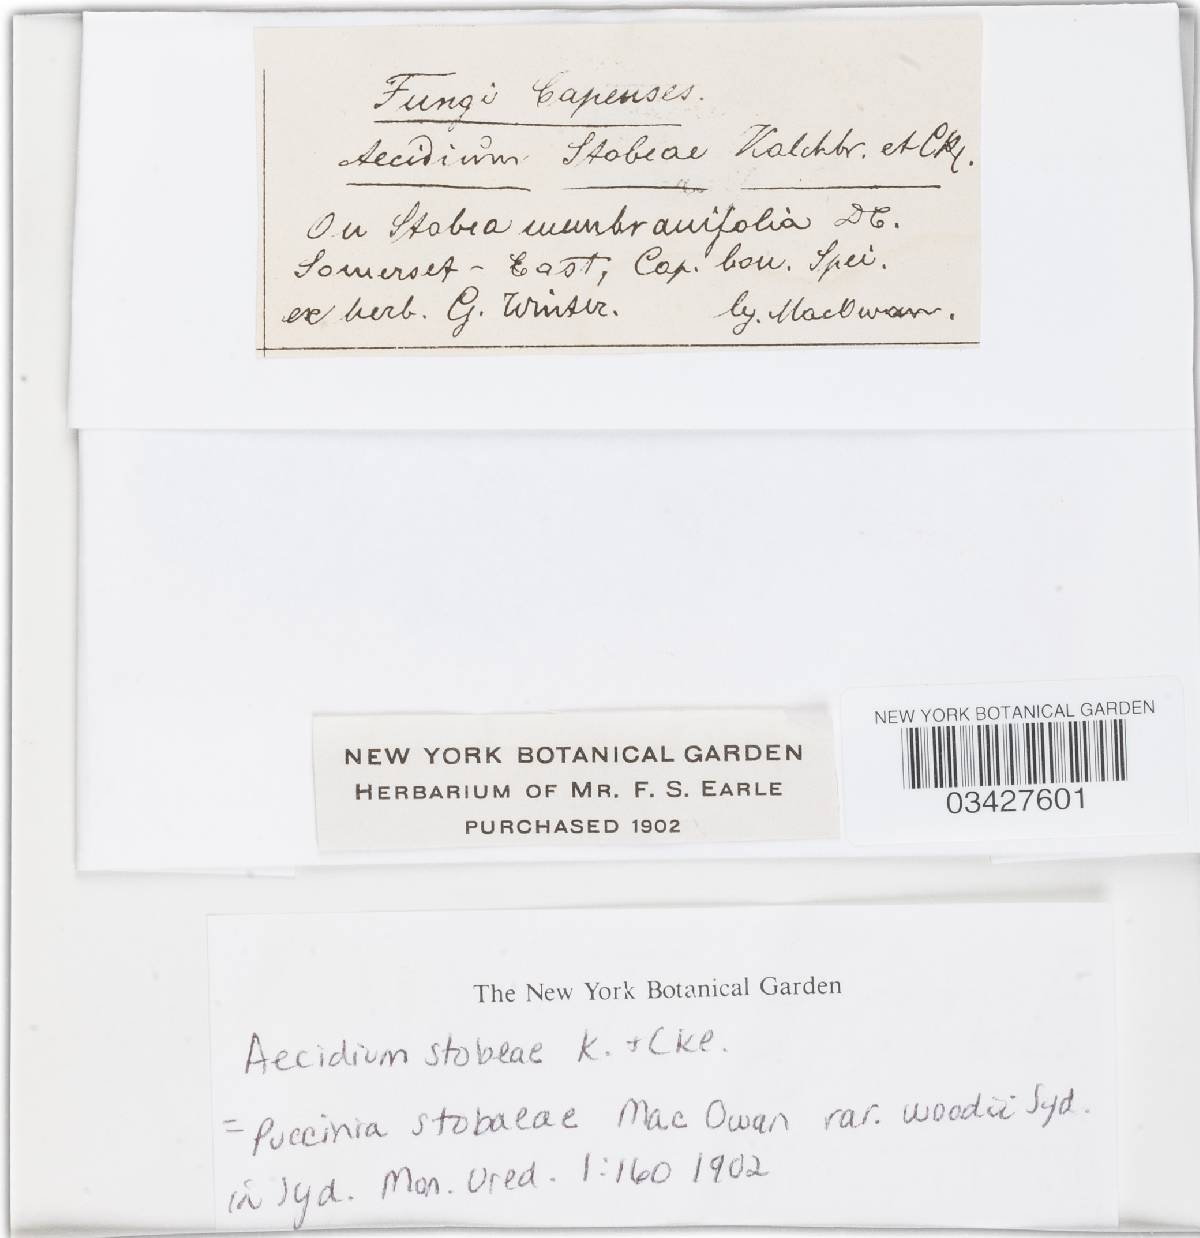 Fungi Capenses.
Aecidium Stobeae Kalchbr. et Cke.
On Stobea membranifolia DC.
Somerset - East, Cap. bon. Spei.
ex herb. G. Winter. lg. MacOwan.
NEW YORK BOTANICAL GARDEN
HERBARIUM OF MR. F. S. EARLE
PURCHASED 1902
NEW YORK BOTANICAL GARDEN
03427601
The New York Botanical Garden
Aecidium stobeae K. + Cke.
= Puccinia stobaeae Mac Owan var. woodii Syd.
in Syd. Mon. Ured. 1:160 1902